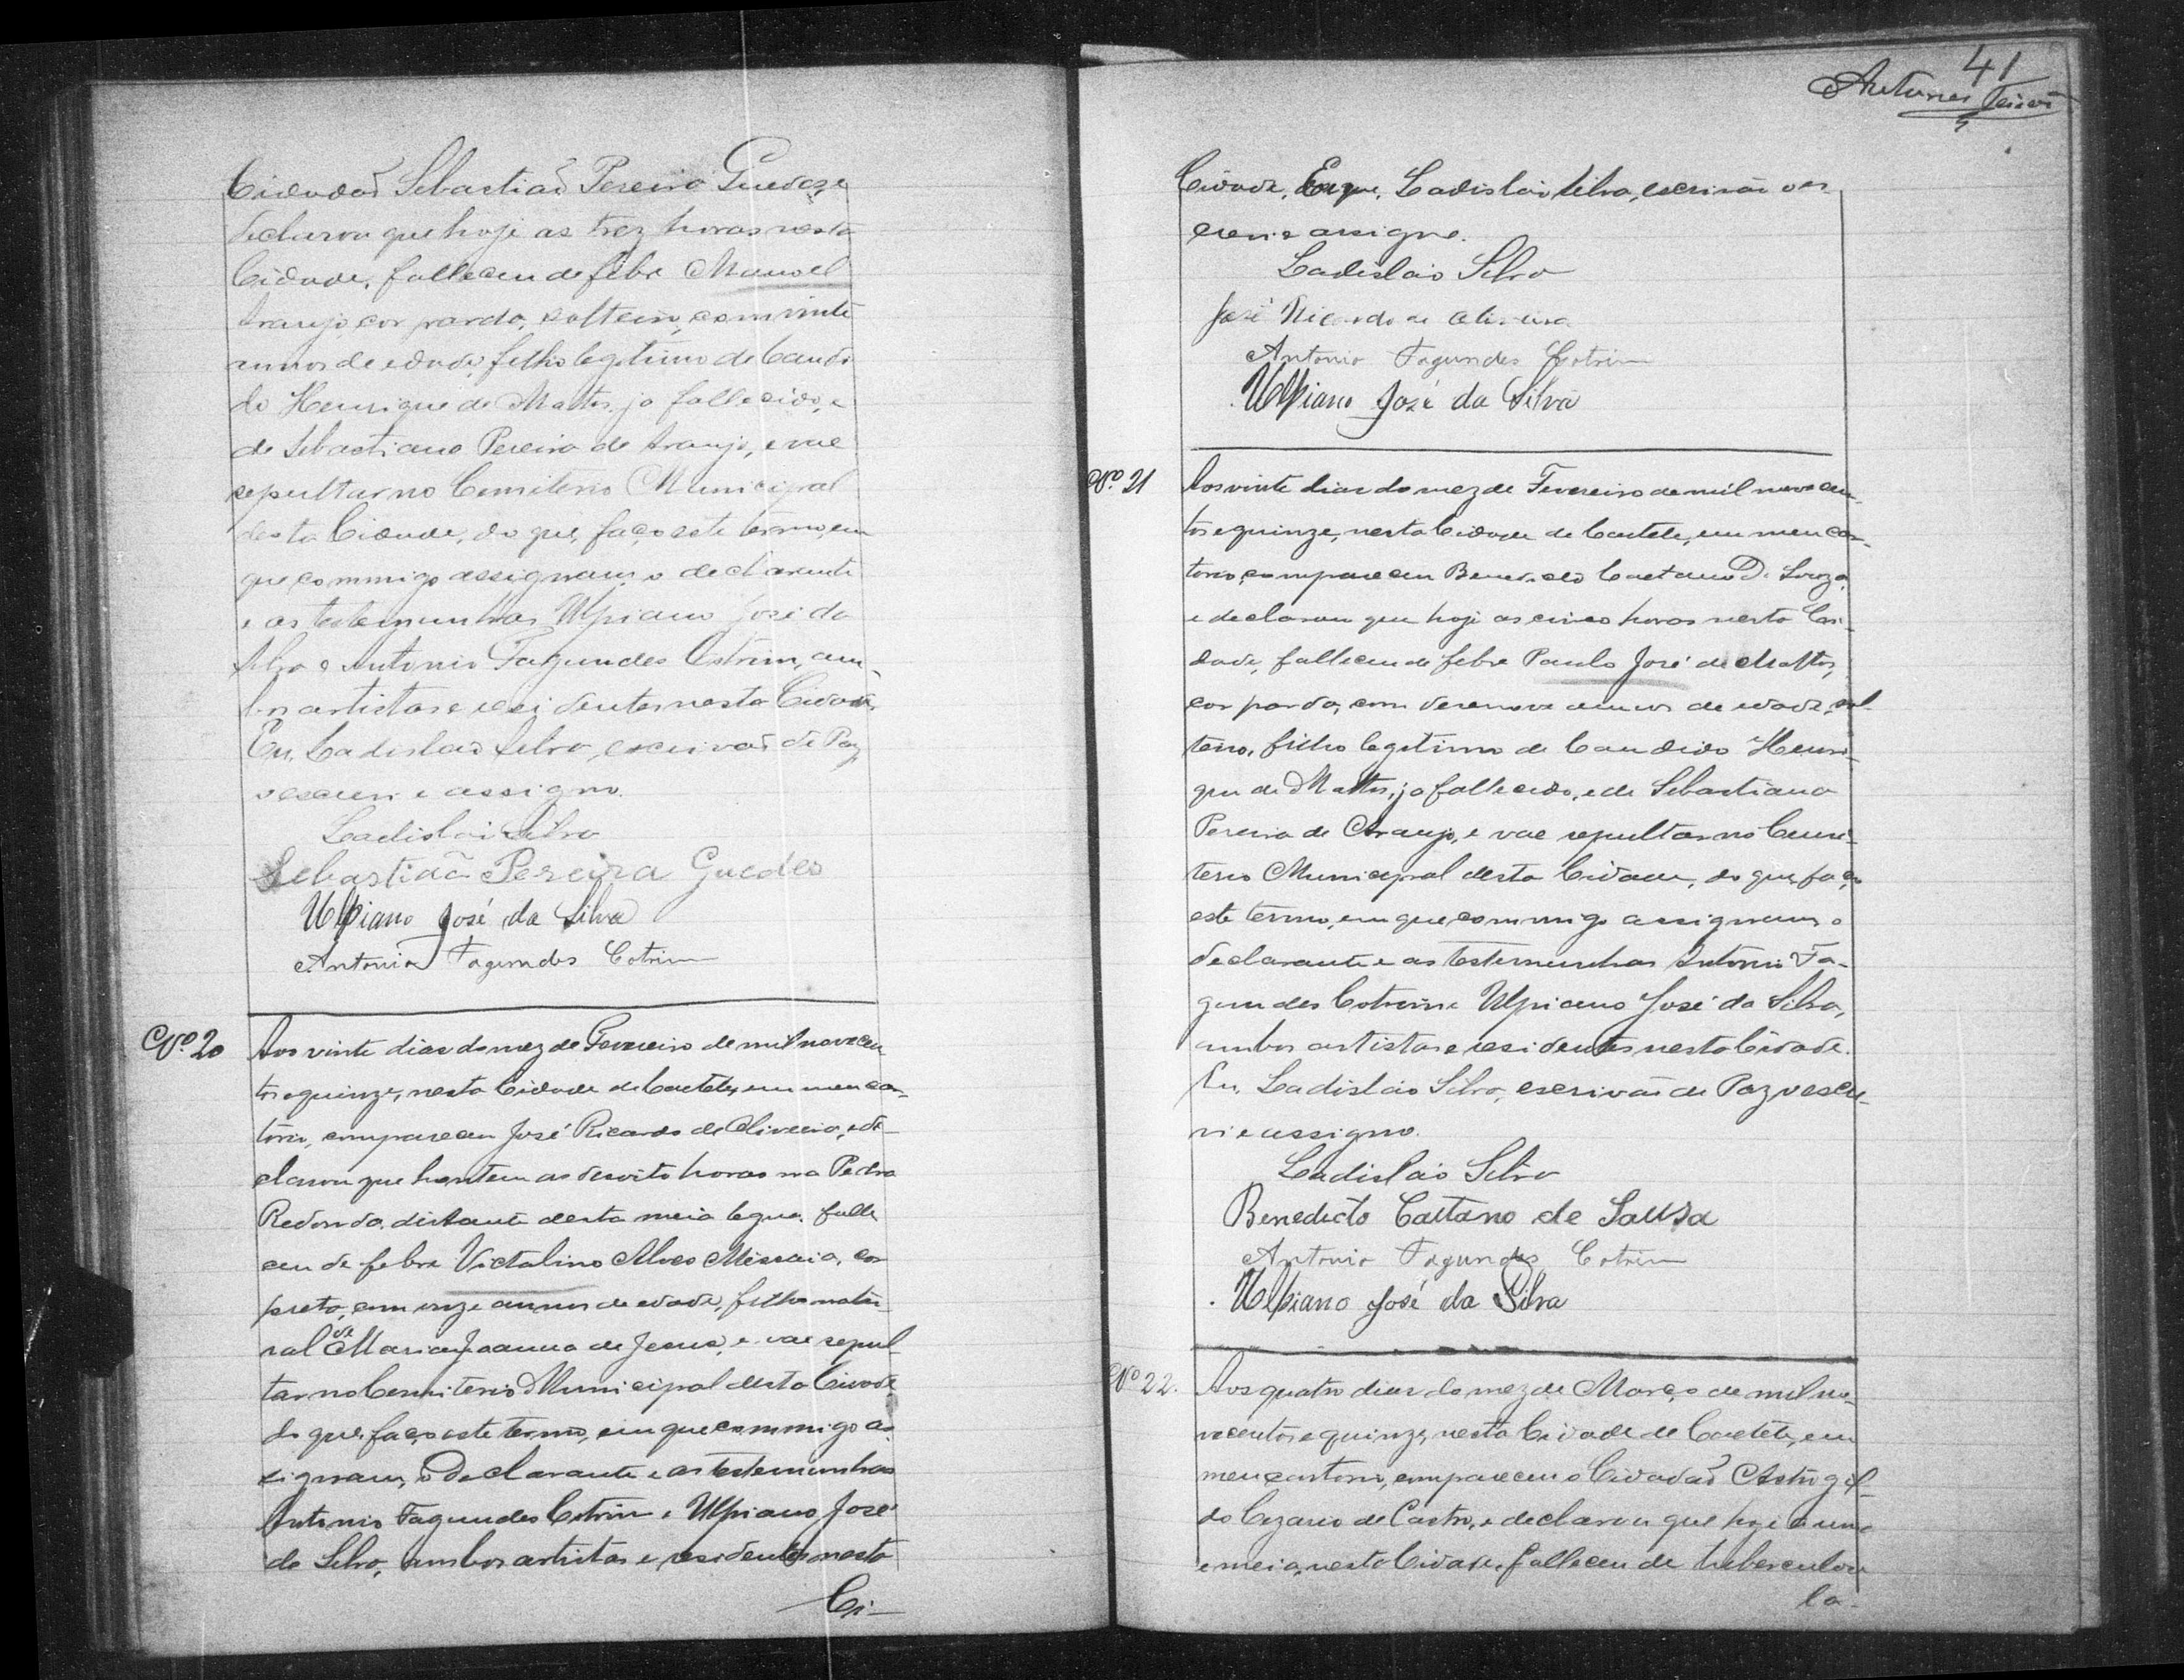 Cidadaõ Sebastiaõ Pereira Guedes, e
declarou que hoje as trez horas nesta
Cidade, falleceu de febre Manoel
Araujo, cor parda, solteiro, com vinte
annos de edade, filho legitimo de Candi
do Henrique de Mattos, ja fallecido, e
de Sebastiana Pereira de Araujo, e vae
sepultar no Cemiterio Municipal
desta Cidade, do que, faço este termo, em
que commigo assignam, o declarante
e as testemunhas Ulpiano José da
Silva e Antonio Fagundes Cotrim, am-
bos artistas e residentes nesta Cidade.
Eu, Ladislao Silva, escrivaõ de Paz
o escrevi e assigno.
Ladislao Silva
Sebastiaõ Pereira Guedes
Ulpiano José da Silva
Antonio Fagundes Cotrim
Nº 20
Aos vinte dias do mez de Fevereiro de mil novecen
tos e quinze, nesta Cidade de Caeteté, em meu car-
torio, compareceu José Ricardo de Oliveira, e de
clarou que hontem as desoito horas na Pedra
Redonda, distante desta meia legua, falle
ceu de febre Victalino Alves Messias, cor
preta, com onze annos de edade, filho natu-
ral de Maria Joanna de Jesus, e vae sepul-
tar no Cemiterio Municipal desta Cidade
do que, faço este termo, em que commigo as
signam, o Declarante e as testemunhas
Antonio Fagundes Cotrim e Ulpiano José
da Silva, ambos artistas e residentes nesta
Ci-
41
Antunes
Cidade, Eu, Ladislao Silva, escrivão o es
crevi e assigno.
Ladislao Silva
José Ricardo de Oliveira
Antonio Fagundes Cotrim
Ulpiano José da Silva
Nº 21
Aos vinte dias do mez de Fevereiro de mil novecen-
tos e quinze, nesta Cidade de Caeteté, em meu car-
torio, compareceu Benedicto Caetano de Souza,
e declarou que hoje as cinco horas nesta Ci-
dade, falleceu de febre Paulo José de Mattos,
cor parda, com desenove annos de edade, sol-
teiro, filho legitimo de Candido Henri-
que de Mattos, ja fallecido, e de Sebastiana
Pereira de Araujo, e vae sepultar no Cemi-
terio Municipal desta Cidade, do que, faço
este termo, em que commigo assignam, o
declarante e as testemunhas Antonio Fa-
gundes Cotrim e Ulpiano José da Silva,
ambos artistas e residentes nesta Cidade.
Eu, Ladislao Silva, escrivão de Paz o escre-
vi e assigno.
Ladislao Silva
Benedicto Caetano de Sousa
Antonio Fagundes Cotrim
Ulpiano José da Silva
Nº 22.
Aos quatro dias do mez de Março de mil no-
vecentos e quinze, nesta Cidade de Caeteté, em
meu cartorio, compareceu o Cidadaõ Astrogil-
do Cezario de Castro, e declarou que hoje a uma
e meia, nesta Cidade, falleceu de tuberculose
la-